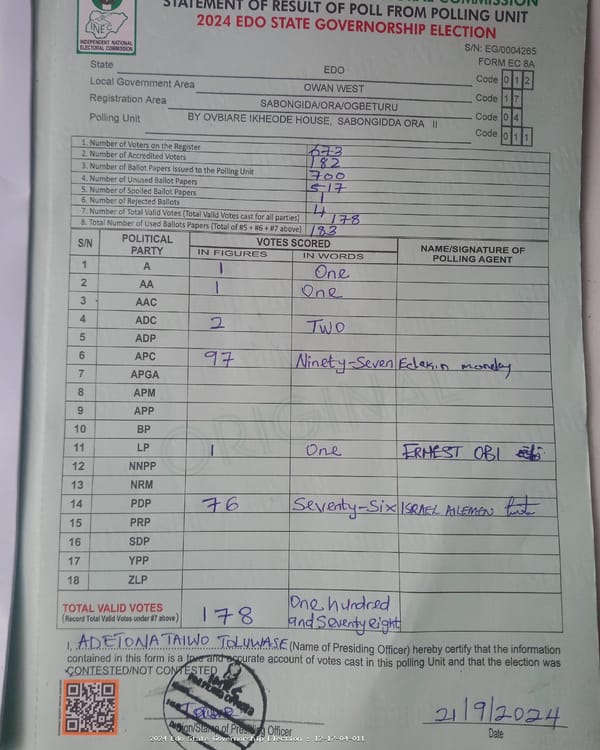 STATEMENT OF RESULT OF POLL FROM POLLING UNIT
2024 EDO STATE GOVERNORSHIP ELECTION
INEC
INDEPENDENT NATIONAL
ELECTORAL COMMISSION
S/N: EG/0004265
FORM EC 8A
State EDO Code 0 1 2
Local Government Area OWAN WEST Code 1 7
Registration Area SABONGIDA/ORA/OGBETURU Code 0 4
Polling Unit BY OVBIARE IKHEODE HOUSE, SABONGIDDA ORA II Code 0 1 1
1. Number of Voters on the Register 673
2. Number of Accredited Voters 182
3. Number of Ballot Papers Issued to the Polling Unit 700
4. Number of Unused Ballot Papers 517
5. Number of Spoiled Ballot Papers 1
6. Number of Rejected Ballots 4
7. Number of Total Valid Votes (Total Valid Votes cast for all parties) 178
8. Total Number of Used Ballots Papers (Total of #5 + #6 + #7 above) 183
S/N POLITICAL PARTY VOTES SCORED NAME/SIGNATURE OF POLLING AGENT
IN FIGURES IN WORDS
1 A 1 One
2 AA 1 One
3 AAC
4 ADC 2 TWO
5 ADP
6 APC 97 Ninety-Seven monday
7 APGA
8 APM
9 APP
10 BP
11 LP 1 One ERNEST OBI
12 NNPP
13 NRM
14 PDP 76 Seventy-Six ISRAEL AILEMEN
15 PRP
16 SDP
17 YPP
18 ZLP
ORIGINAL
TOTAL VALID VOTES 178 One hundred
(Record Total Valid Votes under #7 above) and Seventy eight
I, ADETONA TAIWO TOLUWASE (Name of Presiding Officer) hereby certify that the information
contained in this form is a true and accurate account of votes cast in this polling Unit and that the election was
CONTESTED/NOT CONTESTED
Sign/Stamp of Presiding Officer
21/9/2024
Date
2024 Edo State Governorship Election : 12-17-04-011